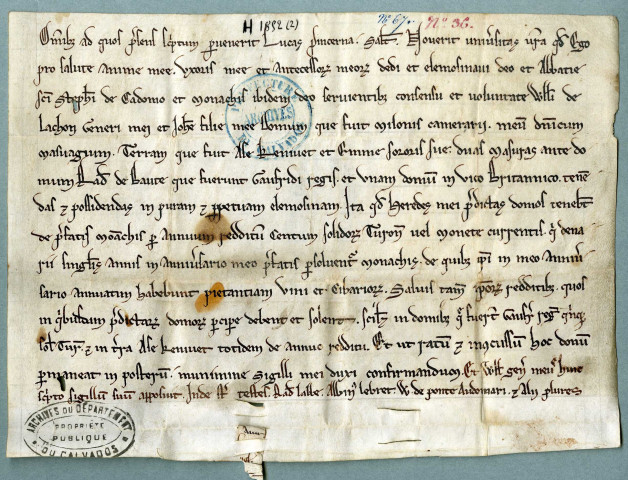 H 1852 (2) No 67. No 36.
Omnib; ad quos p̄sens sc̄ptum pervenerit Lucas pincerna. Salt̄. Noverit univ̄sitas v̄ra qđ Ego
pro salute anime mee. Uxoris mee et antecessorꝝ meorꝝ dedi et elemosinavi deo et Abbatie
sc̄i Steph̄i de Cadomo et monachis ibidem deo servientib; consensu et voluntate Willi de
Lachon Generi mei et Joh̄e filie mee Domum que fuit Milonis camerarii. meū dn̄icum
masuagium. Terram que fuit Ase kenivet et Emme sororis sue: duas masuras ante do
mum Rad̄ de Baute que fuerunt Gaufridi regis. et unam domū in vico Britannico. tenē
das ⁊ possidendas in puram ⁊ ꝑpetuam elemosinam. Ita qđ Heredes mei p̄dictas domos tenebt̄
de p̄fatis moāchis ꝑ Annuum redditū Centum solidorꝝ Turon̄ vel monete currentis. q̄ dena
rii singl̄is annis in anniv̄sario meo p̄fatis ꝑsolvent̄ monachis. de quib; ip̄i in meo anniv̄
sario annuatim habebunt pietantiam vini et cibariorꝝ. Salvis tam̄ ip̄orꝝ redditib;. quos
in q̄busdam p̄dictarꝝ domorꝝ ꝑcipe debent et solent. scil; in domib; q̄ fuer̄t Gaufr̄ reg̃ q̄nq̄;
sol̄ Tur̄. ⁊ in tr̄ra Ase kenivet totidem de annuo redditu. Et ut ratū ⁊ incussum hoc donū
ꝑmaneat in posterū. munimine sigilli mei duxi confirmandum. Et Will̄ gen̄ meus huic
sc̄pto sigillum suū apposuit. Inde st̄ testes. Rad̄ Labbe. Albin; lebret. W. de ponte Audomari. ⁊ Alii plures
PREFECTURE ARCHIVES DU CALVADOS
ARCHIVES DU DÉPARTEMENT
PROPRIÉTÉ
PUBLIQUE
DU CALVADOS